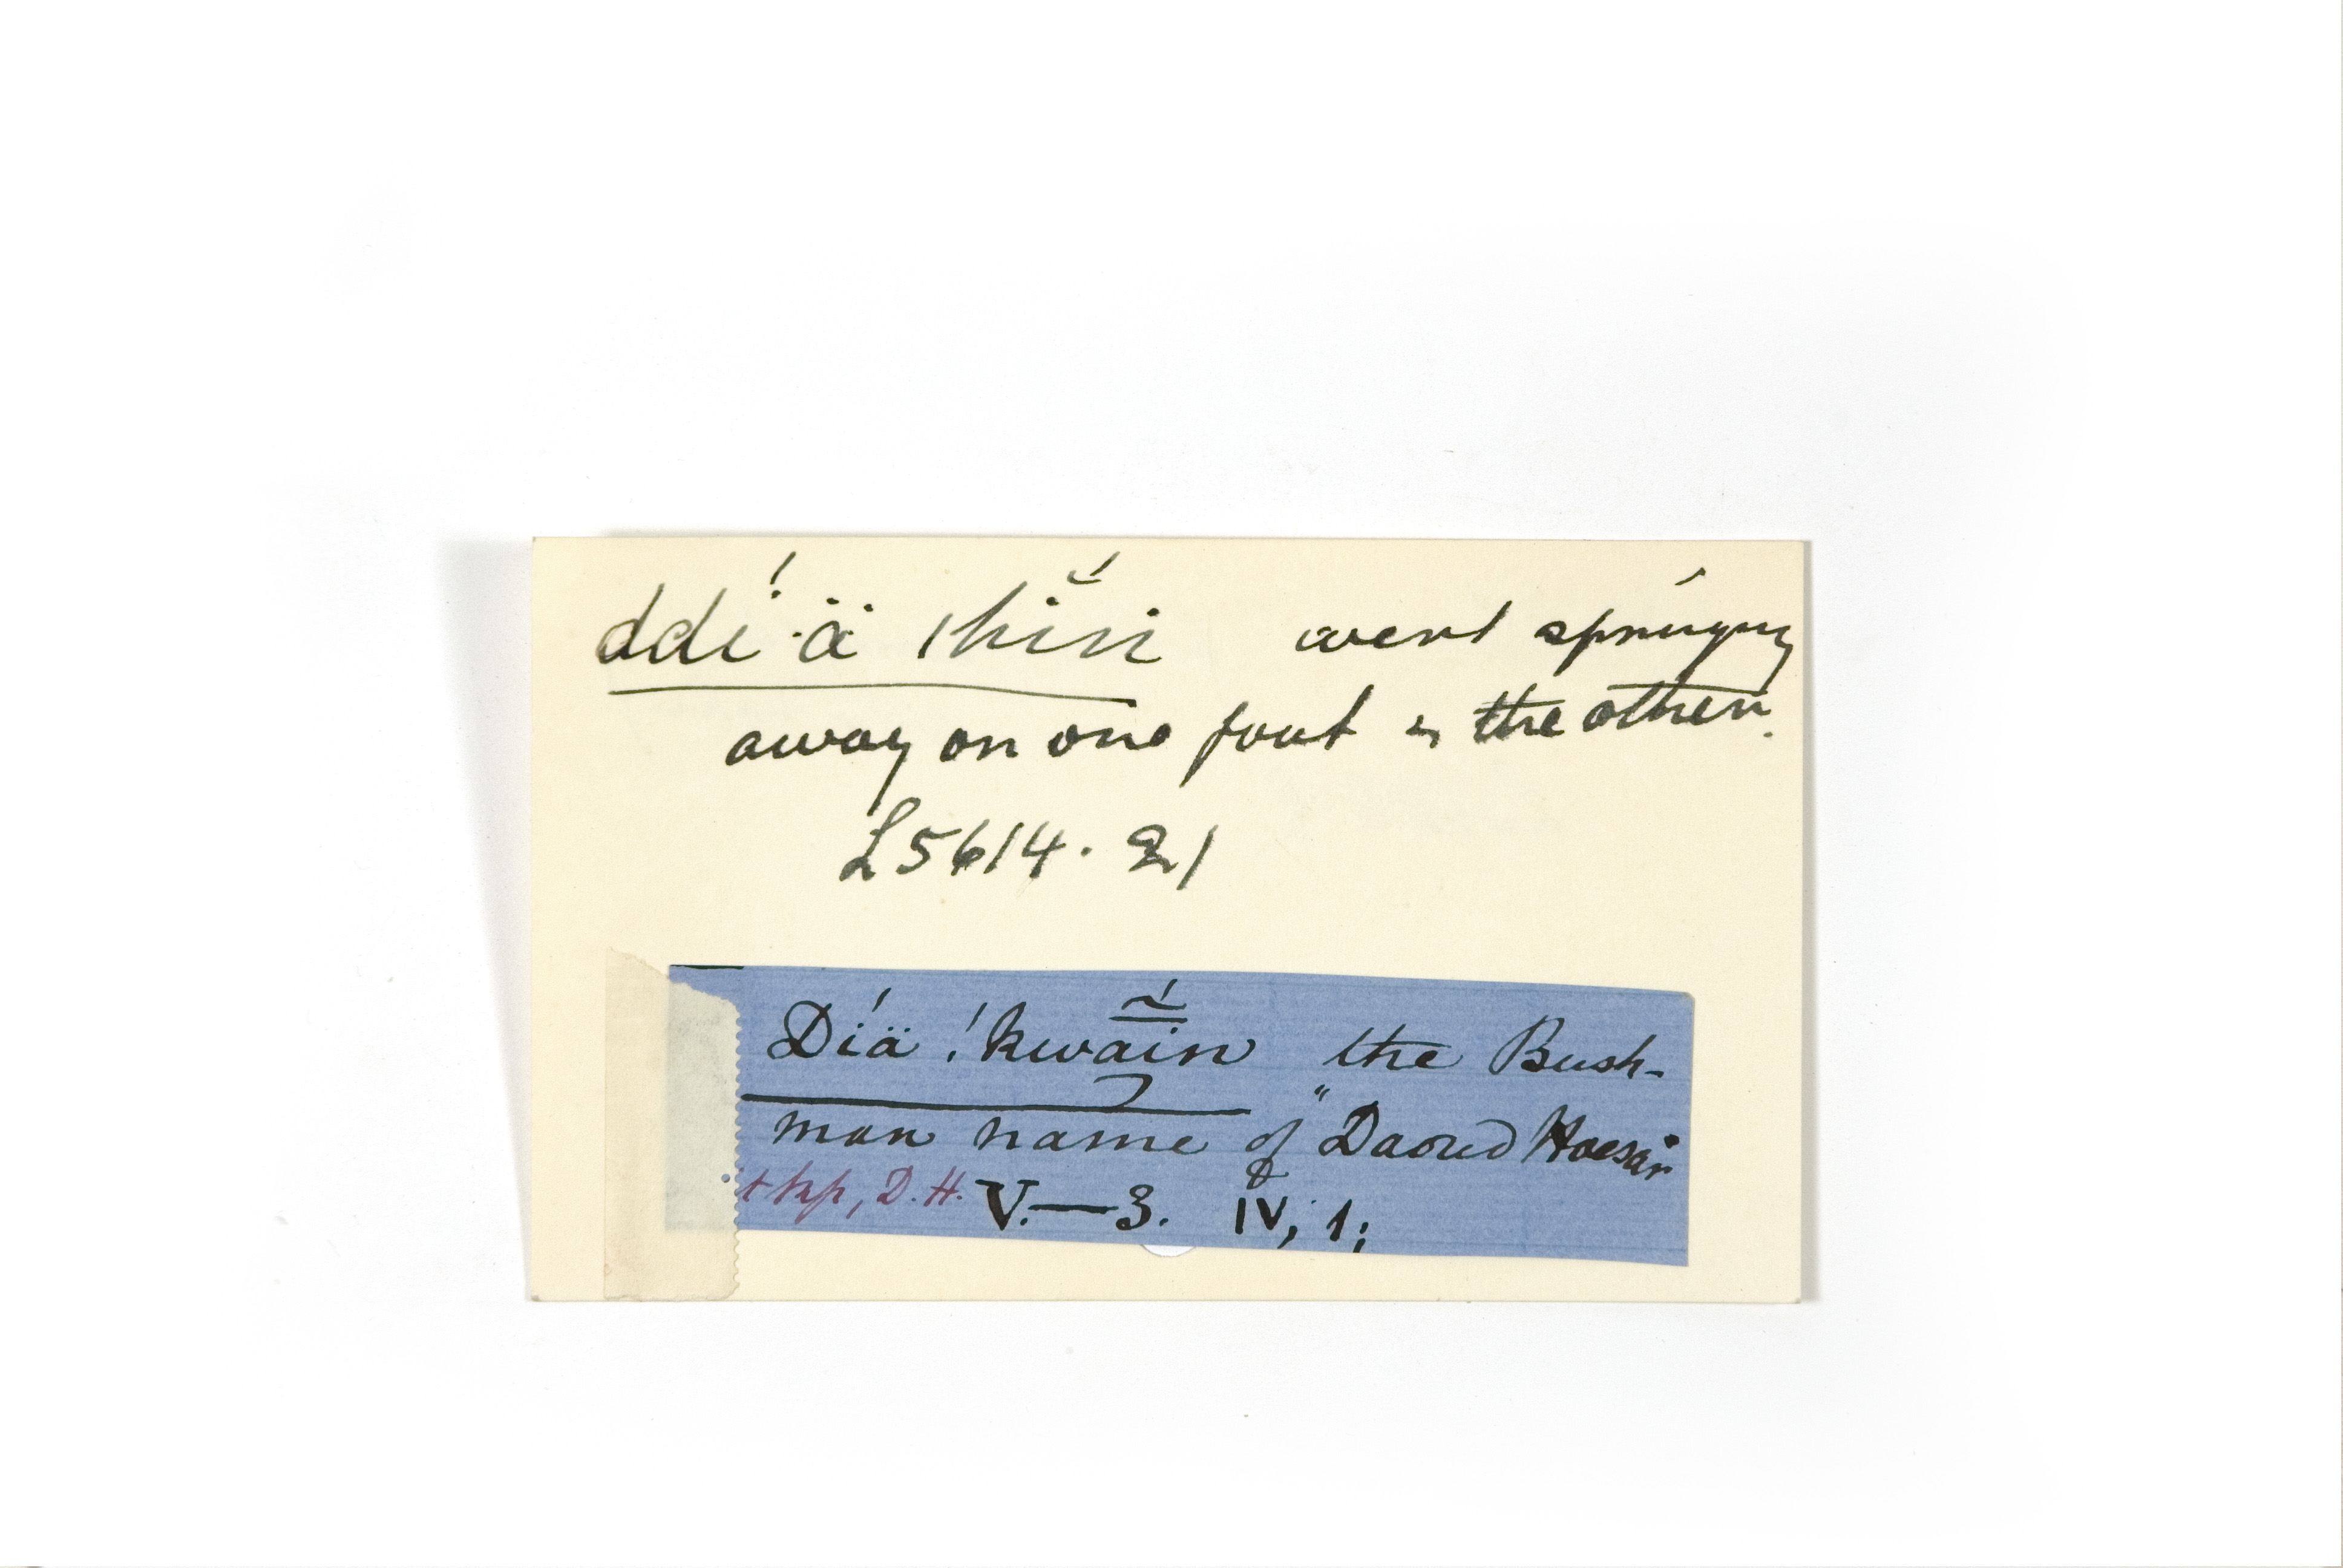 ddí·ä |hĭń went springing
away on one foot & the other.
L5614. 21
Díä !kwãin the Bush-
man name of "Daoud Hoesar"
D.H. V.—3. IV, 1;